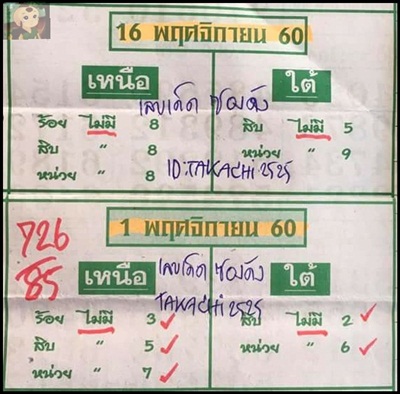 16 พฤศจิกายน 60
เหนือ ใต้
เลขเด็ด ซองดัง
ร้อย ไม่มี 8 สิบ ไม่มี 5
สิบ " 8 หน่วย " 9
หน่วย " 8
ID:TAKACHI2525
1 พฤศจิกายน 60
726
85
เหนือ ใต้
เลขเด็ด ซองดัง
TAKACHI2525
ร้อย ไม่มี 3 ✓ สิบ ไม่มี 2 ✓
สิบ " 5 ✓ หน่วย " 6 ✓
หน่วย " 7 ✓